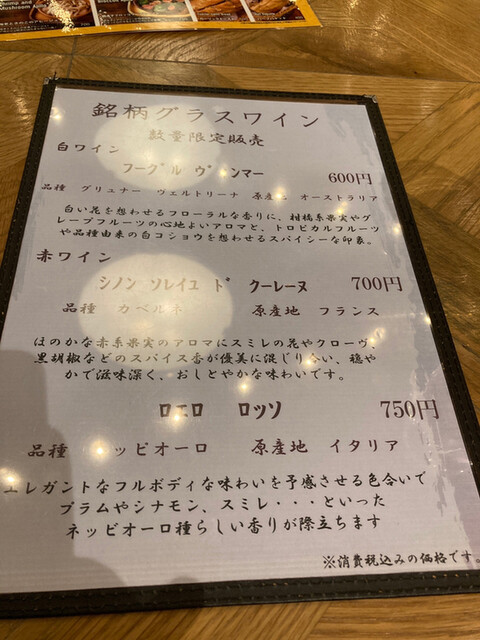 Shrimp and
Mushroom
銘柄グラスワイン
数量限定販売
白ワイン
フーグル ヴ ンマー 600円
品種 グリュナー ヴェルトリーナ 原産地 オーストラリア
白い花を想わせるフローラルな香りに、柑橘系果実やグ
レープフルーツの心地よいアロマと、トロピカルフルーツ
や品種由来の白コショウを想わせるスパイシーな印象。
赤ワイン
シノン ソレイユ ド クーレーヌ 700円
品種 カベルネ 原産地 フランス
ほのかな赤系果実のアロマにスミレの花やクローヴ、
黒胡椒などのスパイス香が優美に混じり合い、穏や
かで滋味深く、おしとやかな味わいです。
ロエロ ロッソ 750円
品種 ネッビオーロ 原産地 イタリア
エレガントなフルボディな味わいを予感させる色合いで
プラムやシナモン、スミレ・・・といった
ネッビオーロ種らしい香りが際立ちます
※消費税込みの価格です。